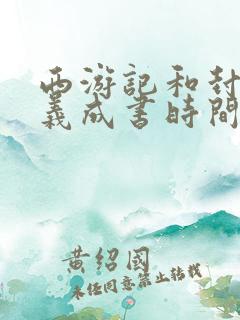 西游記和封
義成書時間
黄紹國
未經同意禁止轉載